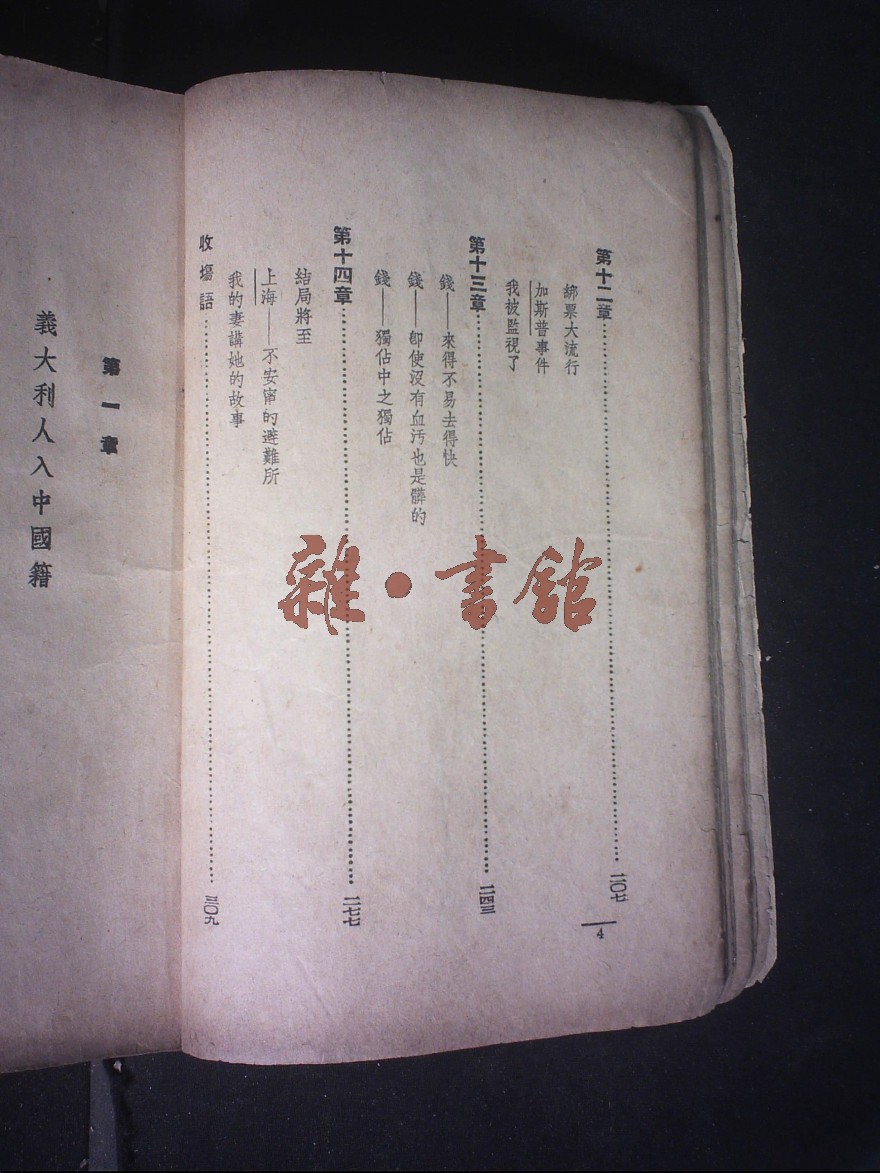 第十二章……二〇七
綁票大流行
加斯普事件
我被監視了
第十三章……二四三
錢——來得不易去得快
錢——卽使沒有血汚也是髒的
錢——獨佔中之獨佔
第十四章……二七七
結局將至
上海——不安甯的避難所
我的妻講她的故事
收塲語……三〇九
4
第一章
義大利人入中國籍
雜·書舘